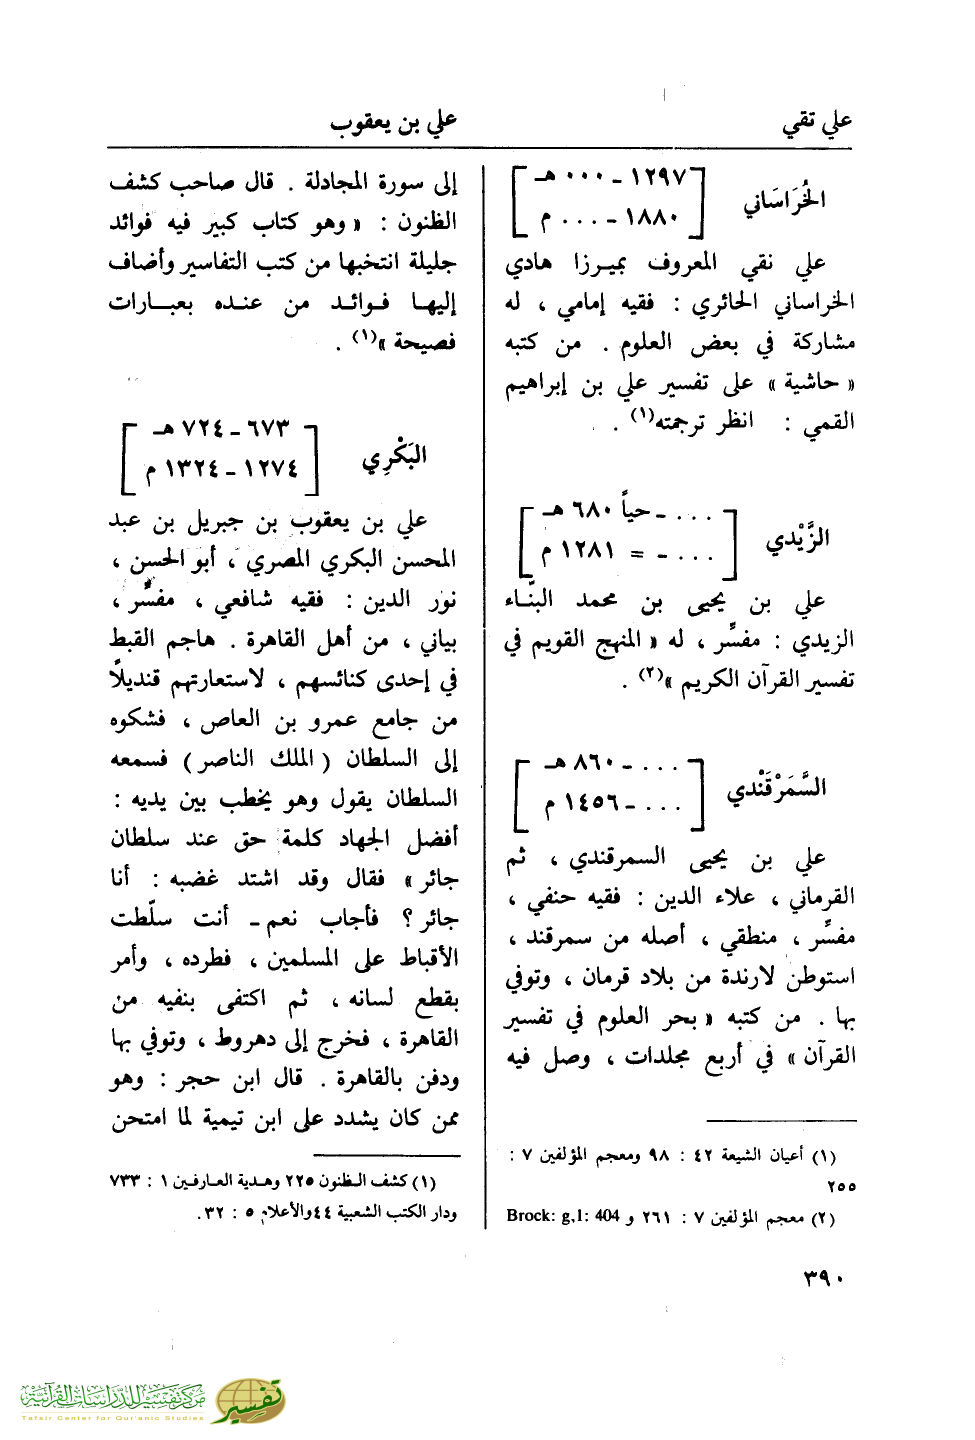 علي تقي
علي بن يعقوب
الخُرَاسَاني
١٢٩٧ - ٠٠٠ هـ
١٨٨٠ - ... م
علي نقي المعروف بميرزا هادي
الخراساني الحائري : فقيه إمامي ، له
مشاركة في بعض العلوم . من كتبه
« حاشية » على تفسير علي بن إبراهيم
القمي : انظر ترجمته(١) .
الزَّيْدي
... - حياً ٦٨٠ هـ
... - = ١٢٨١ م
علي بن يحيى بن محمد البنّاء
الزيدي : مفسِّر ، له « المنهج القويم في
تفسير القرآن الكريم »(٢) .
السَّمَرْقَنْدي
... - ٨٦٠ هـ
... - ١٤٥٦ م
علي بن يحيى السمرقندي ، ثم
القرماني ، علاء الدين : فقيه حنفي ،
مفسِّر ، منطقي ، أصله من سمرقند ،
استوطن لارندة من بلاد قرمان ، وتوفي
بها . من كتبه « بحر العلوم في تفسير
القرآن » في أربع مجلدات ، وصل فيه
(١) أعيان الشيعة ٤٢ : ٩٨ ومعجم المؤلفين ٧ :
٢٥٥
(٢) معجم المؤلفين ٧ : ٢٦١ و Brock: g,1: 404
إلى سورة المجادلة . قال صاحب كشف
الظنون : « وهو كتاب كبير فيه فوائد
جليلة انتخبها من كتب التفاسير وأضاف
إليها فوائد من عنده بعبارات
فصيحة »(١) .
البَكْرِي
٦٧٣ - ٧٢٤ هـ
١٢٧٤ - ١٣٢٤ م
علي بن يعقوب بن جبريل بن عبد
المحسن البكري المصري ، أبو الحسن ،
نور الدين : فقيه شافعي ، مفسِّر ،
بياني ، من أهل القاهرة . هاجم القبط
في إحدى كنائسهم ، لاستعارتهم قنديلاً
من جامع عمرو بن العاص ، فشكوه
إلى السلطان ( الملك الناصر ) فسمعه
السلطان يقول وهو يخطب بين يديه :
أفضل الجهاد كلمة حق عند سلطان
جائر » فقال وقد اشتد غضبه : أنا
جائر ؟ فأجاب نعم - أنت سلّطت
الأقباط على المسلمين ، فطرده ، وأمر
بقطع لسانه ، ثم اكتفى بنفيه من
القاهرة ، فخرج إلى دهروط ، وتوفي بها
ودفن بالقاهرة . قال ابن حجر : وهو
ممن كان يشدد على ابن تيمية لما امتحن
(١) كشف الظنون ٢٢٥ وهدية العارفين ١ : ٧٣٣
ودار الكتب الشعبية ٤٤ والأعلام ٥ : ٣٢.
٣٩٠
مركز تفسير للدراسات القرآنية
Tafsir Center for Qur'anic Studies
تفسير